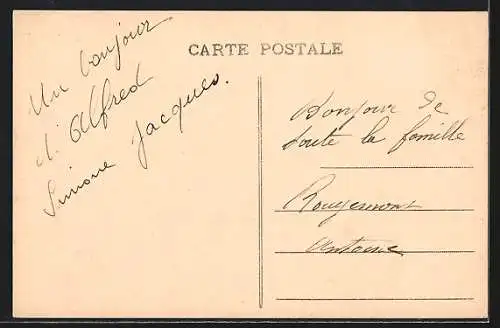 CARTE POSTALE
Un bonjour
d'Alfred
Simone Jacques.
Bonjour de
toute la famille
Rougemont
Antoine